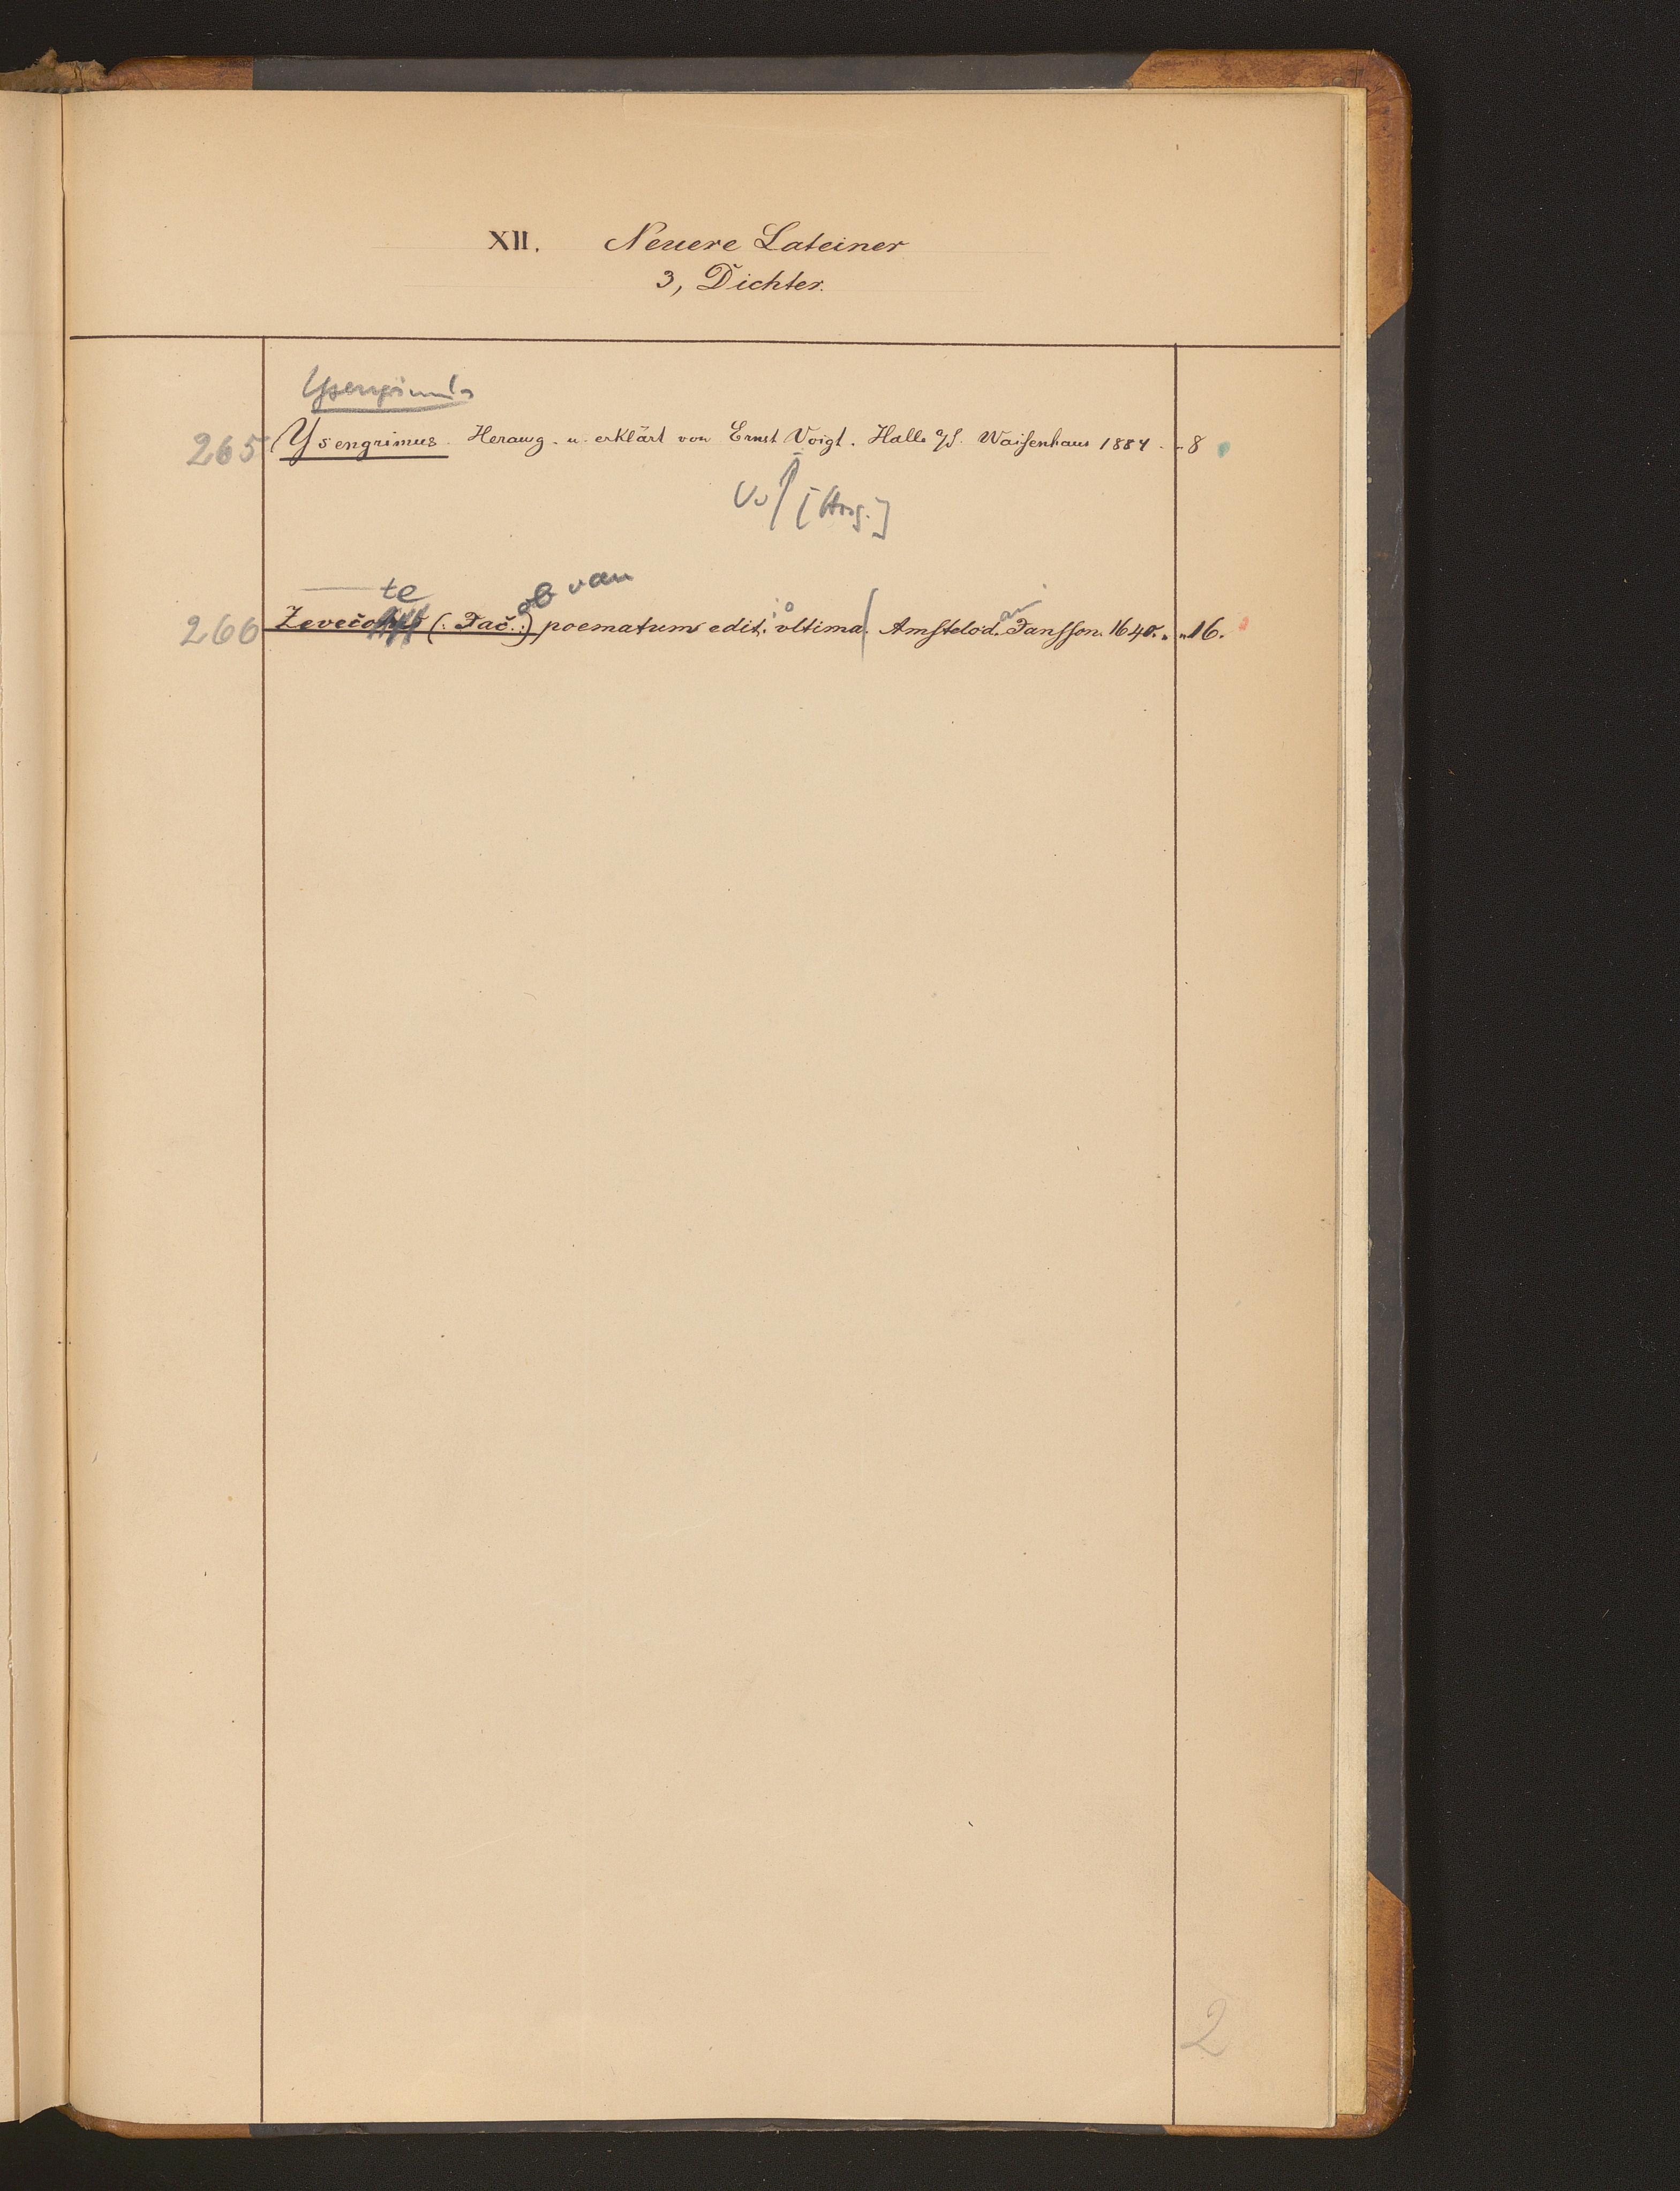 XII. Neuere Lateiner
3, Dichter.
Ysengrimus
265 Ysengrimus. Herausg. u. erklärt von Ernst Voigt. Halle a/S. Waisenhaus 1884. „ 8
[Hrsg.]
te ob van
266 Zevečo (: Jač.:) poematum edit. ultima. Amstelod. Jansson. 1640. „ 16.
2